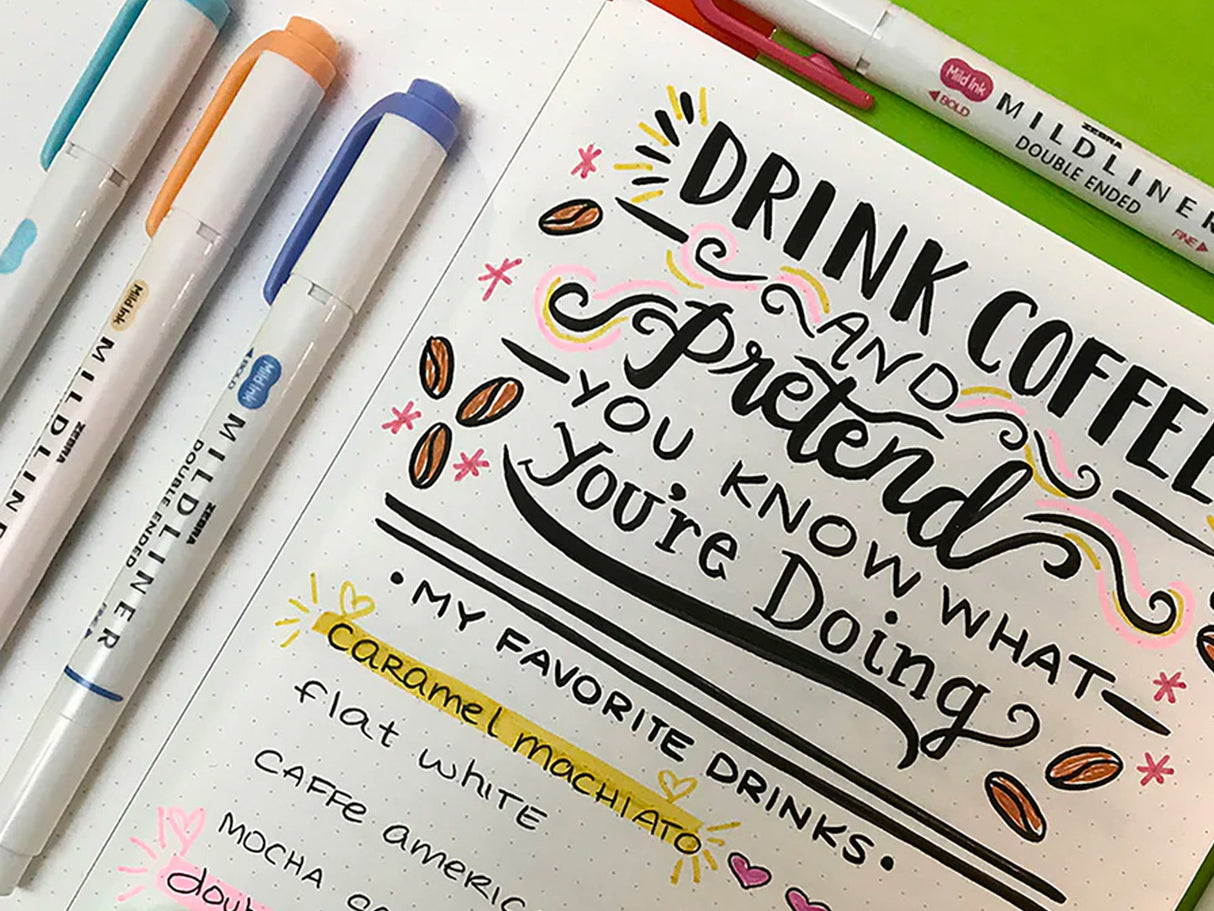 DRINK COFFEE
AND
Pretend
YOU KNOW WHAT
You're Doing
• MY FAVORITE DRINKS •
caramel machiato
flat white
CAFFe americ
MOCHA
dou
Mild Ink
MILDLINER
ZEBRA
Mild Ink
BOLD
MILDLINER
ZEBRA
DOUBLE ENDED
Mild Ink
BOLD
MILDLINER
ZEBRA
DOUBLE ENDED
FINE